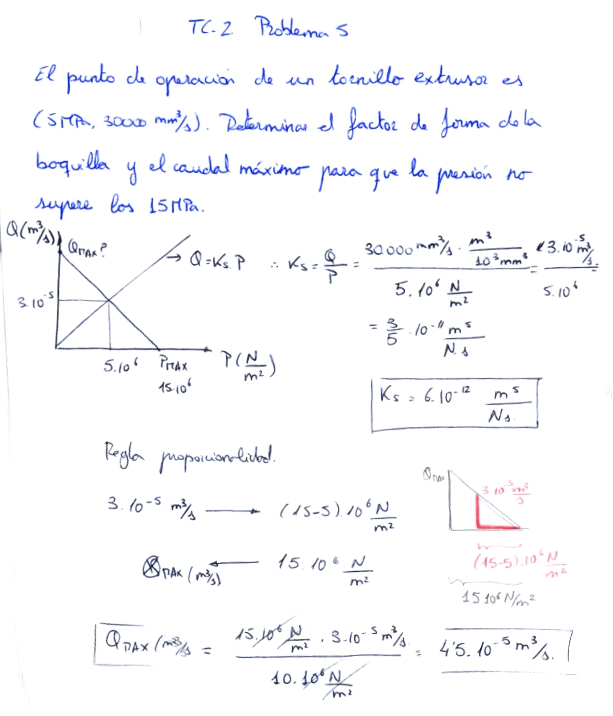 TC-2 Problema 5
El punto de operación de un tornillo extrusor es
(5MPa, 30000 mm³/s). Determinar el factor de forma de la
boquilla y el caudal máximo para que la presión no
supere los 15MPa.
Q(m³/s)
QMAX?
→ Q=Ks.P ∴ Ks = Q/P = 30000 mm³/s · m³/10⁹ mm³ / 5.10⁶ N/m² = 3.10⁻⁵ m³/s / 5.10⁶
3.10⁻⁵
= 3/5 .10⁻¹¹ m⁵/N.s
5.10⁶ PMAX P(N/m²)
15.10⁶
Ks = 6.10⁻¹² m⁵/Ns.
Regla proporcionalidad.
3.10⁻⁵ m³/s → (15-5).10⁶ N/m²
QMAX (m³/s) ← 15.10⁶ N/m²
QMAX
3 10⁻⁵ m³/s
(15-5).10⁶ N/m²
15 10⁶ N/m²
QMAX (m³/s) = 15.10⁶ N/m² · 3.10⁻⁵ m³/s / 10.10⁶ N/m² = 4'5.10⁻⁵ m³/s.